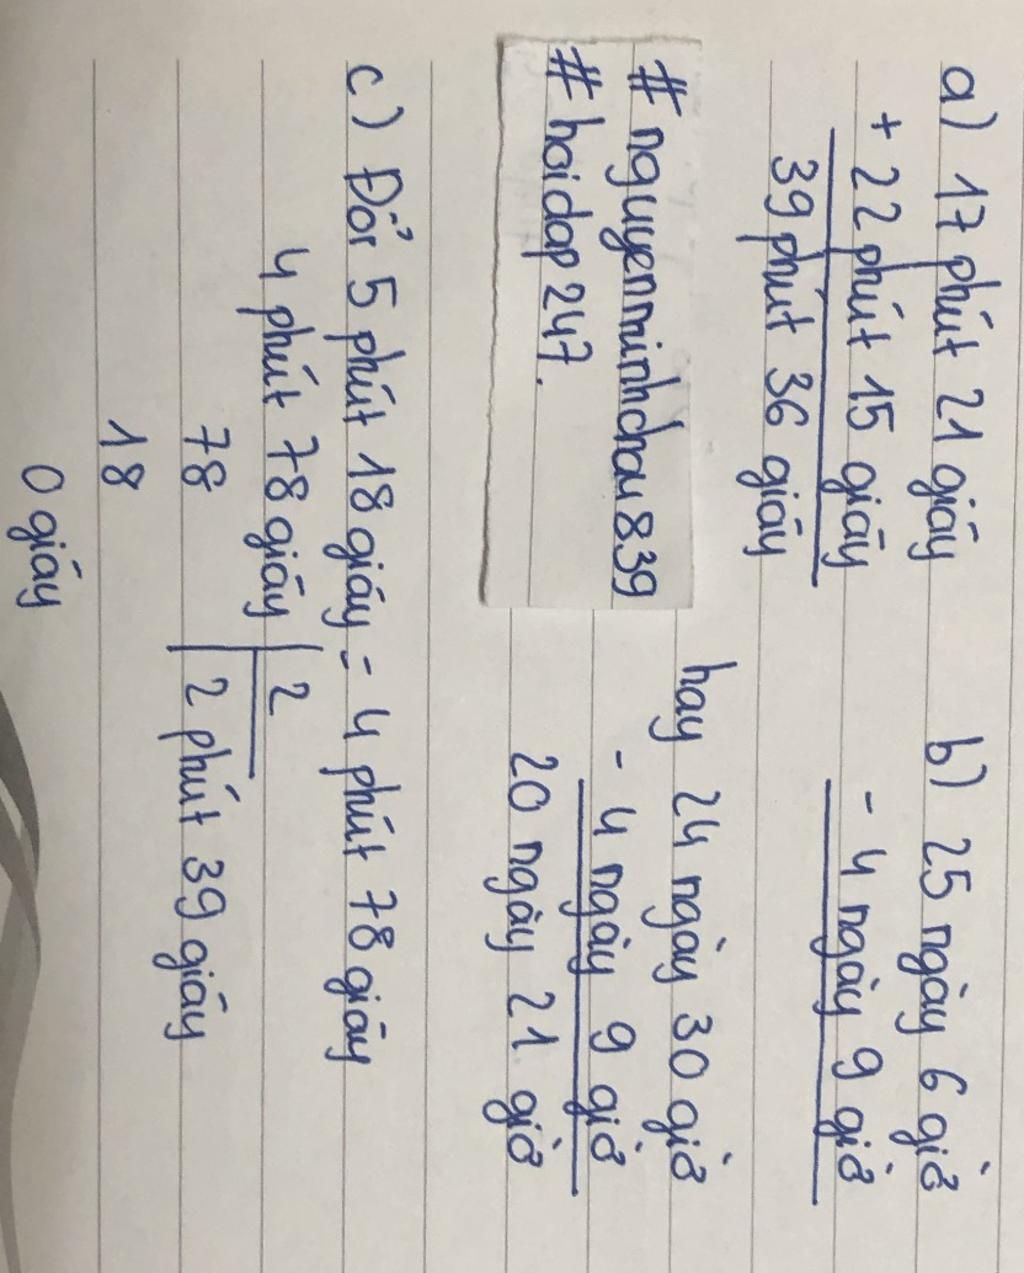 a) 17 phút 21 giây
+ 22 phút 15 giây
39 phút 36 giây
b) 25 ngày 6 giờ
- 4 ngày 9 giờ
hay 24 ngày 30 giờ
- 4 ngày 9 giờ
20 ngày 21 giờ
# nguyenminhchau839
# hoidap247.
c) Đổi 5 phút 18 giây = 4 phút 78 giây
4 phút 78 giây 2
78 2 phút 39 giây
18
0 giây